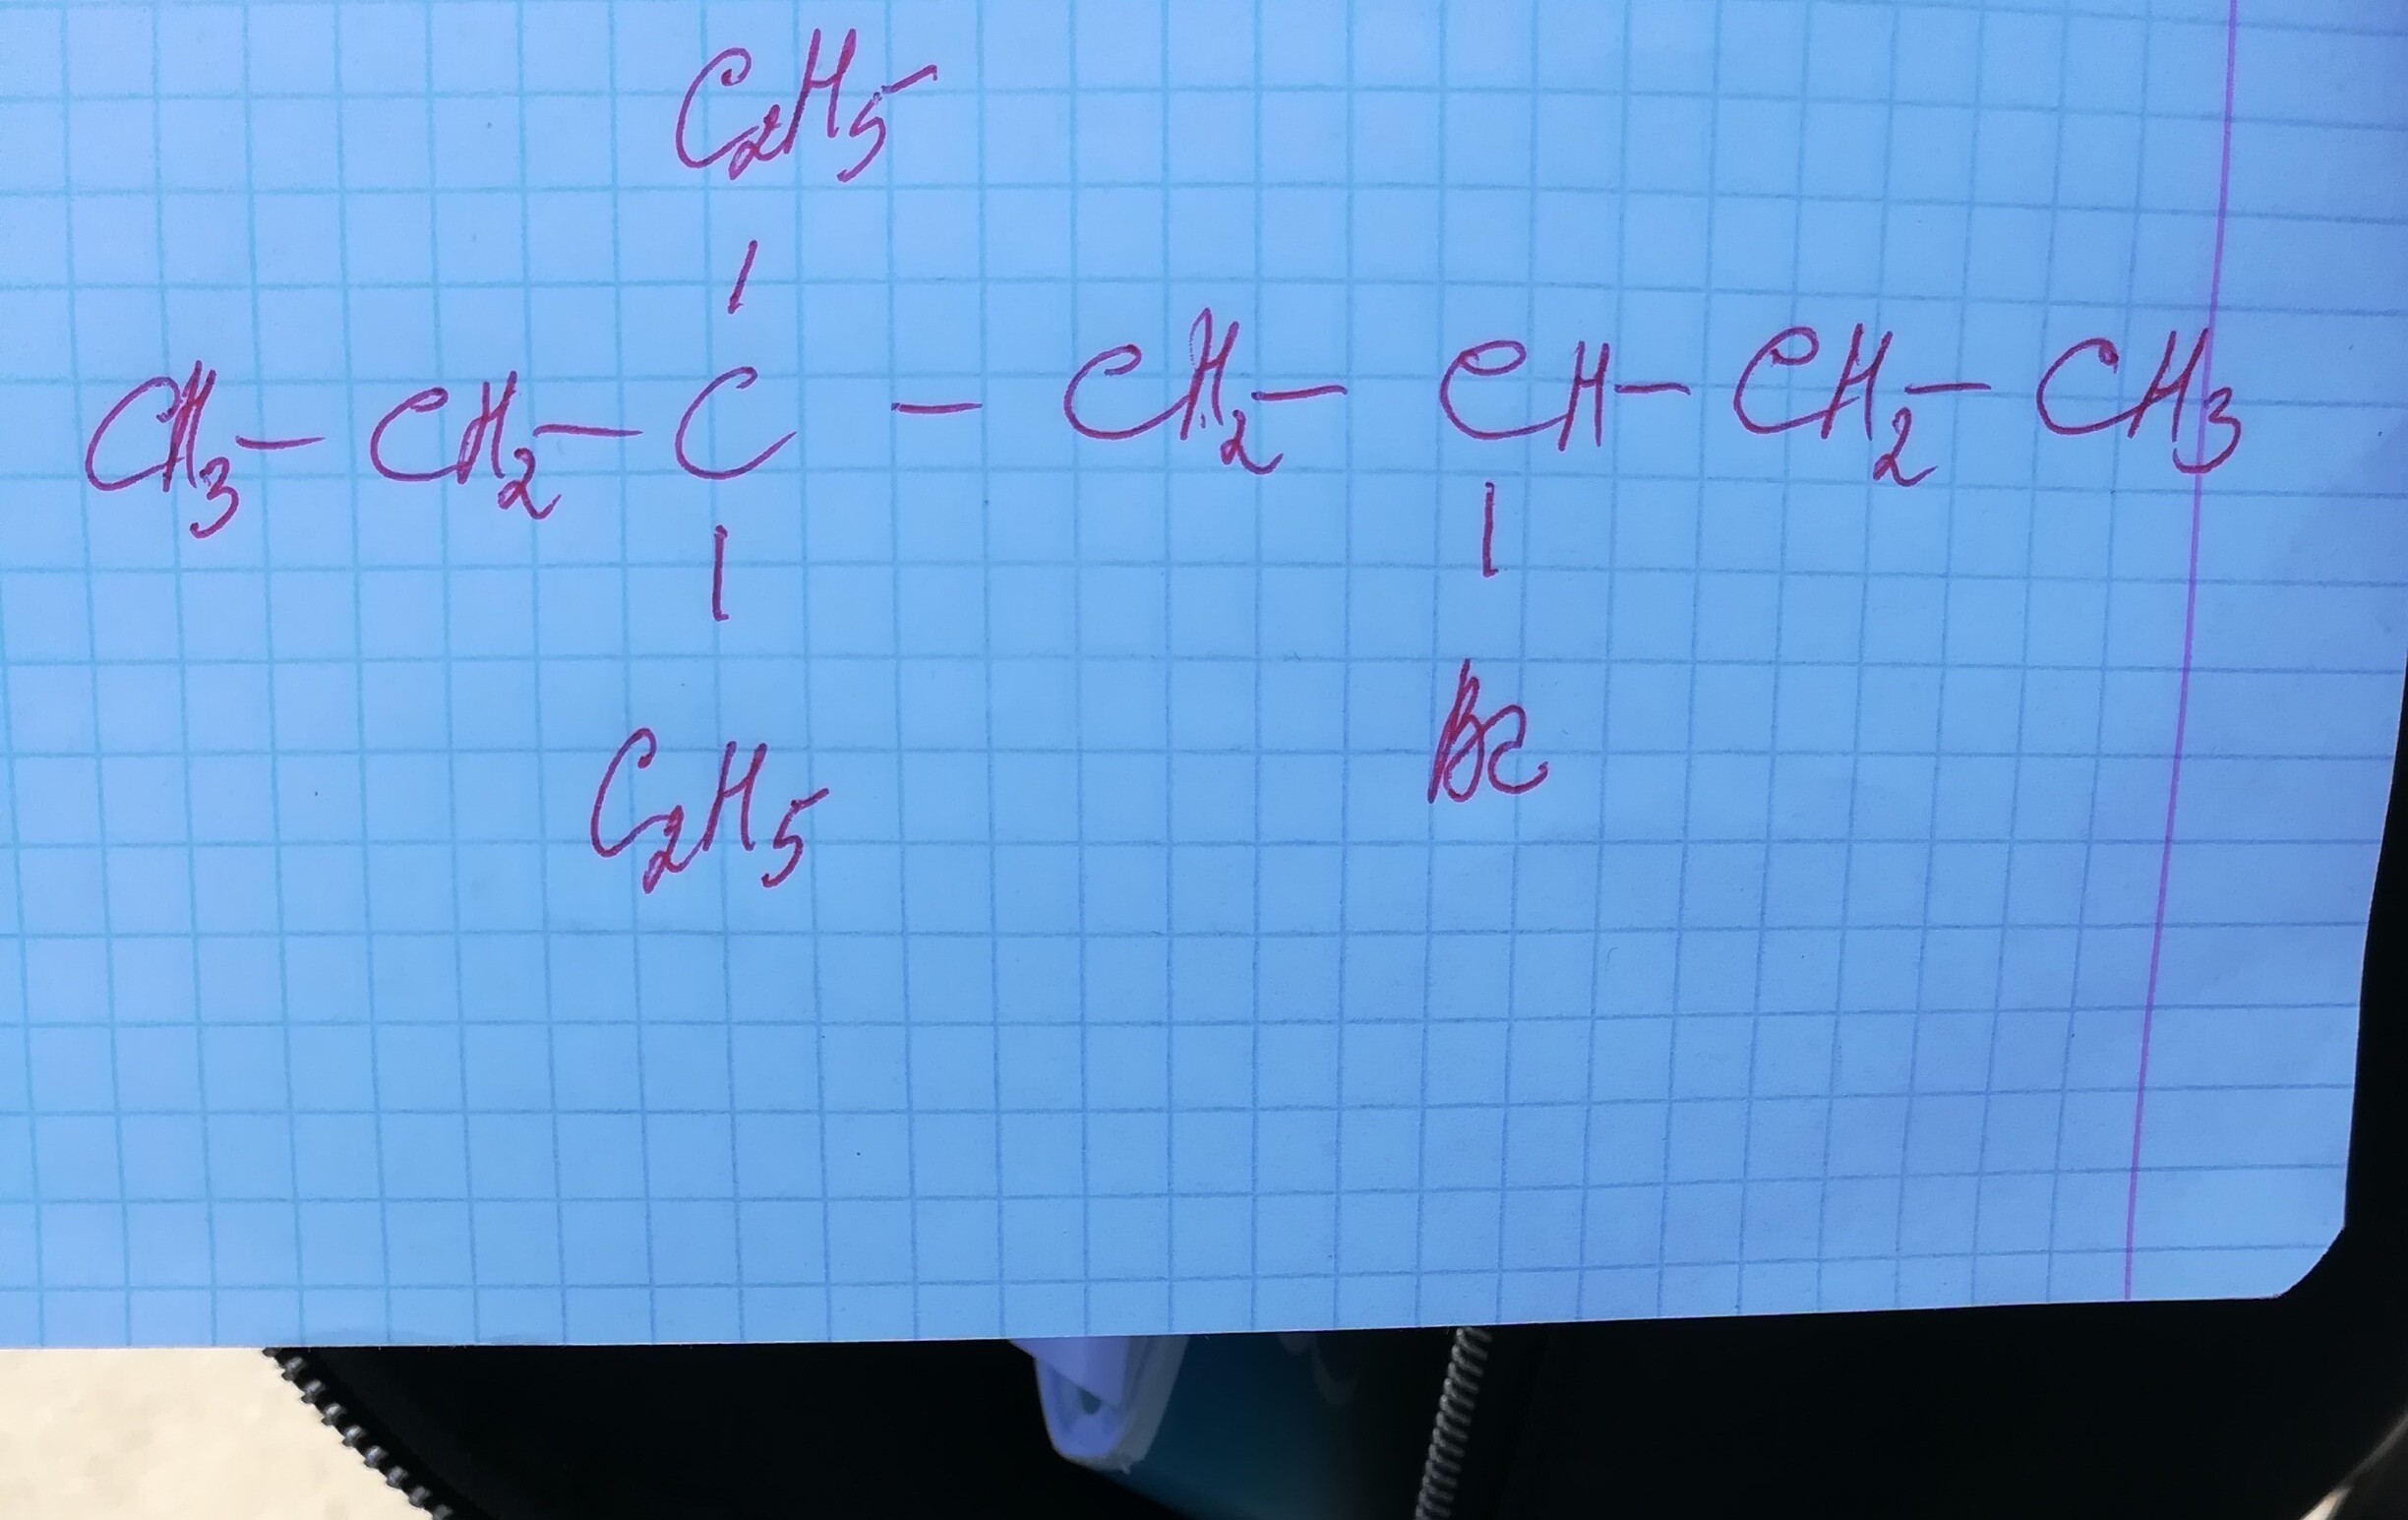 C2H5
|
CH3 - CH2 - C - CH2 - CH - CH2 - CH3
| |
C2H5 Br